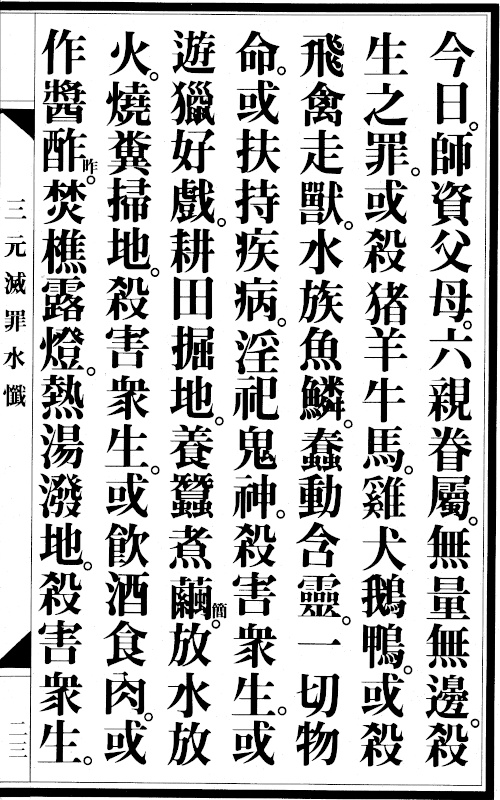 今日。師資父母。六親眷屬。無量無邊。殺
生之罪。或殺猪羊牛馬。雞犬鵝鴨。或殺
飛禽走獸。水族魚鱗。蠢動含靈。一切物
命。或扶持疾病。淫祀鬼神。殺害衆生。或
遊獵好戲。耕田掘地。養蠶煮繭簡。放水放
火。燒糞掃地。殺害衆生。或飲酒食肉。或
作醬酢昨。焚樵露燈。熱湯潑地。殺害衆生。
三元滅罪水懺
二三